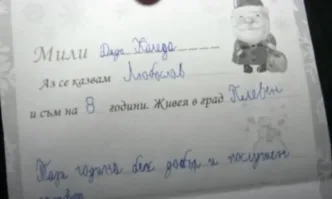 Мили Дядо Коледа
Аз се казвам Любослав
и съм на 8 години. Живея в град Плевен
Тази година бях добър и послушен